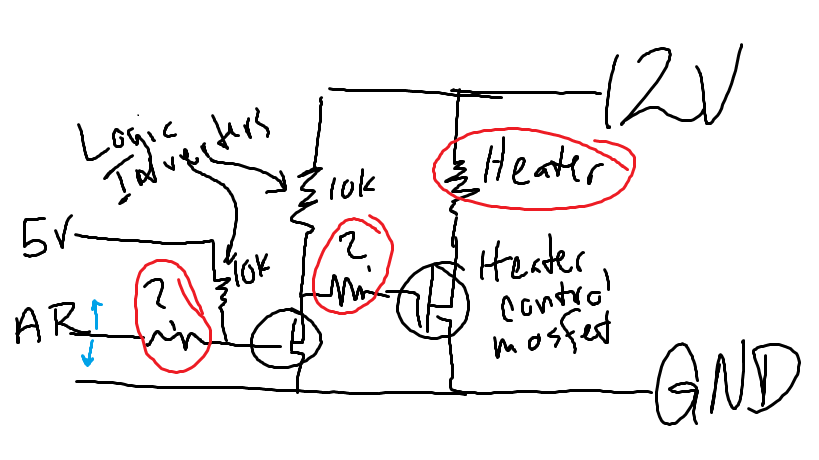 12V
Logic
Inverters
Heater
10k
5V
?
10k
?
Heater
control
mosfet
AR
GND